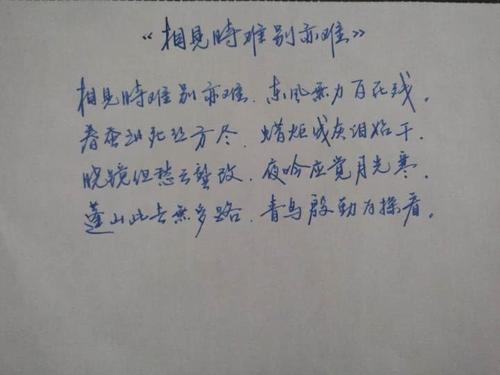 《相见時难别亦难》
相见時难别亦难、东风無力百花残。
春蚕到死丝方尽、蜡炬成灰泪始干。
晓镜但愁云鬓改、夜吟应觉月光寒。
蓬山此去無多路、青鸟殷勤为探看。